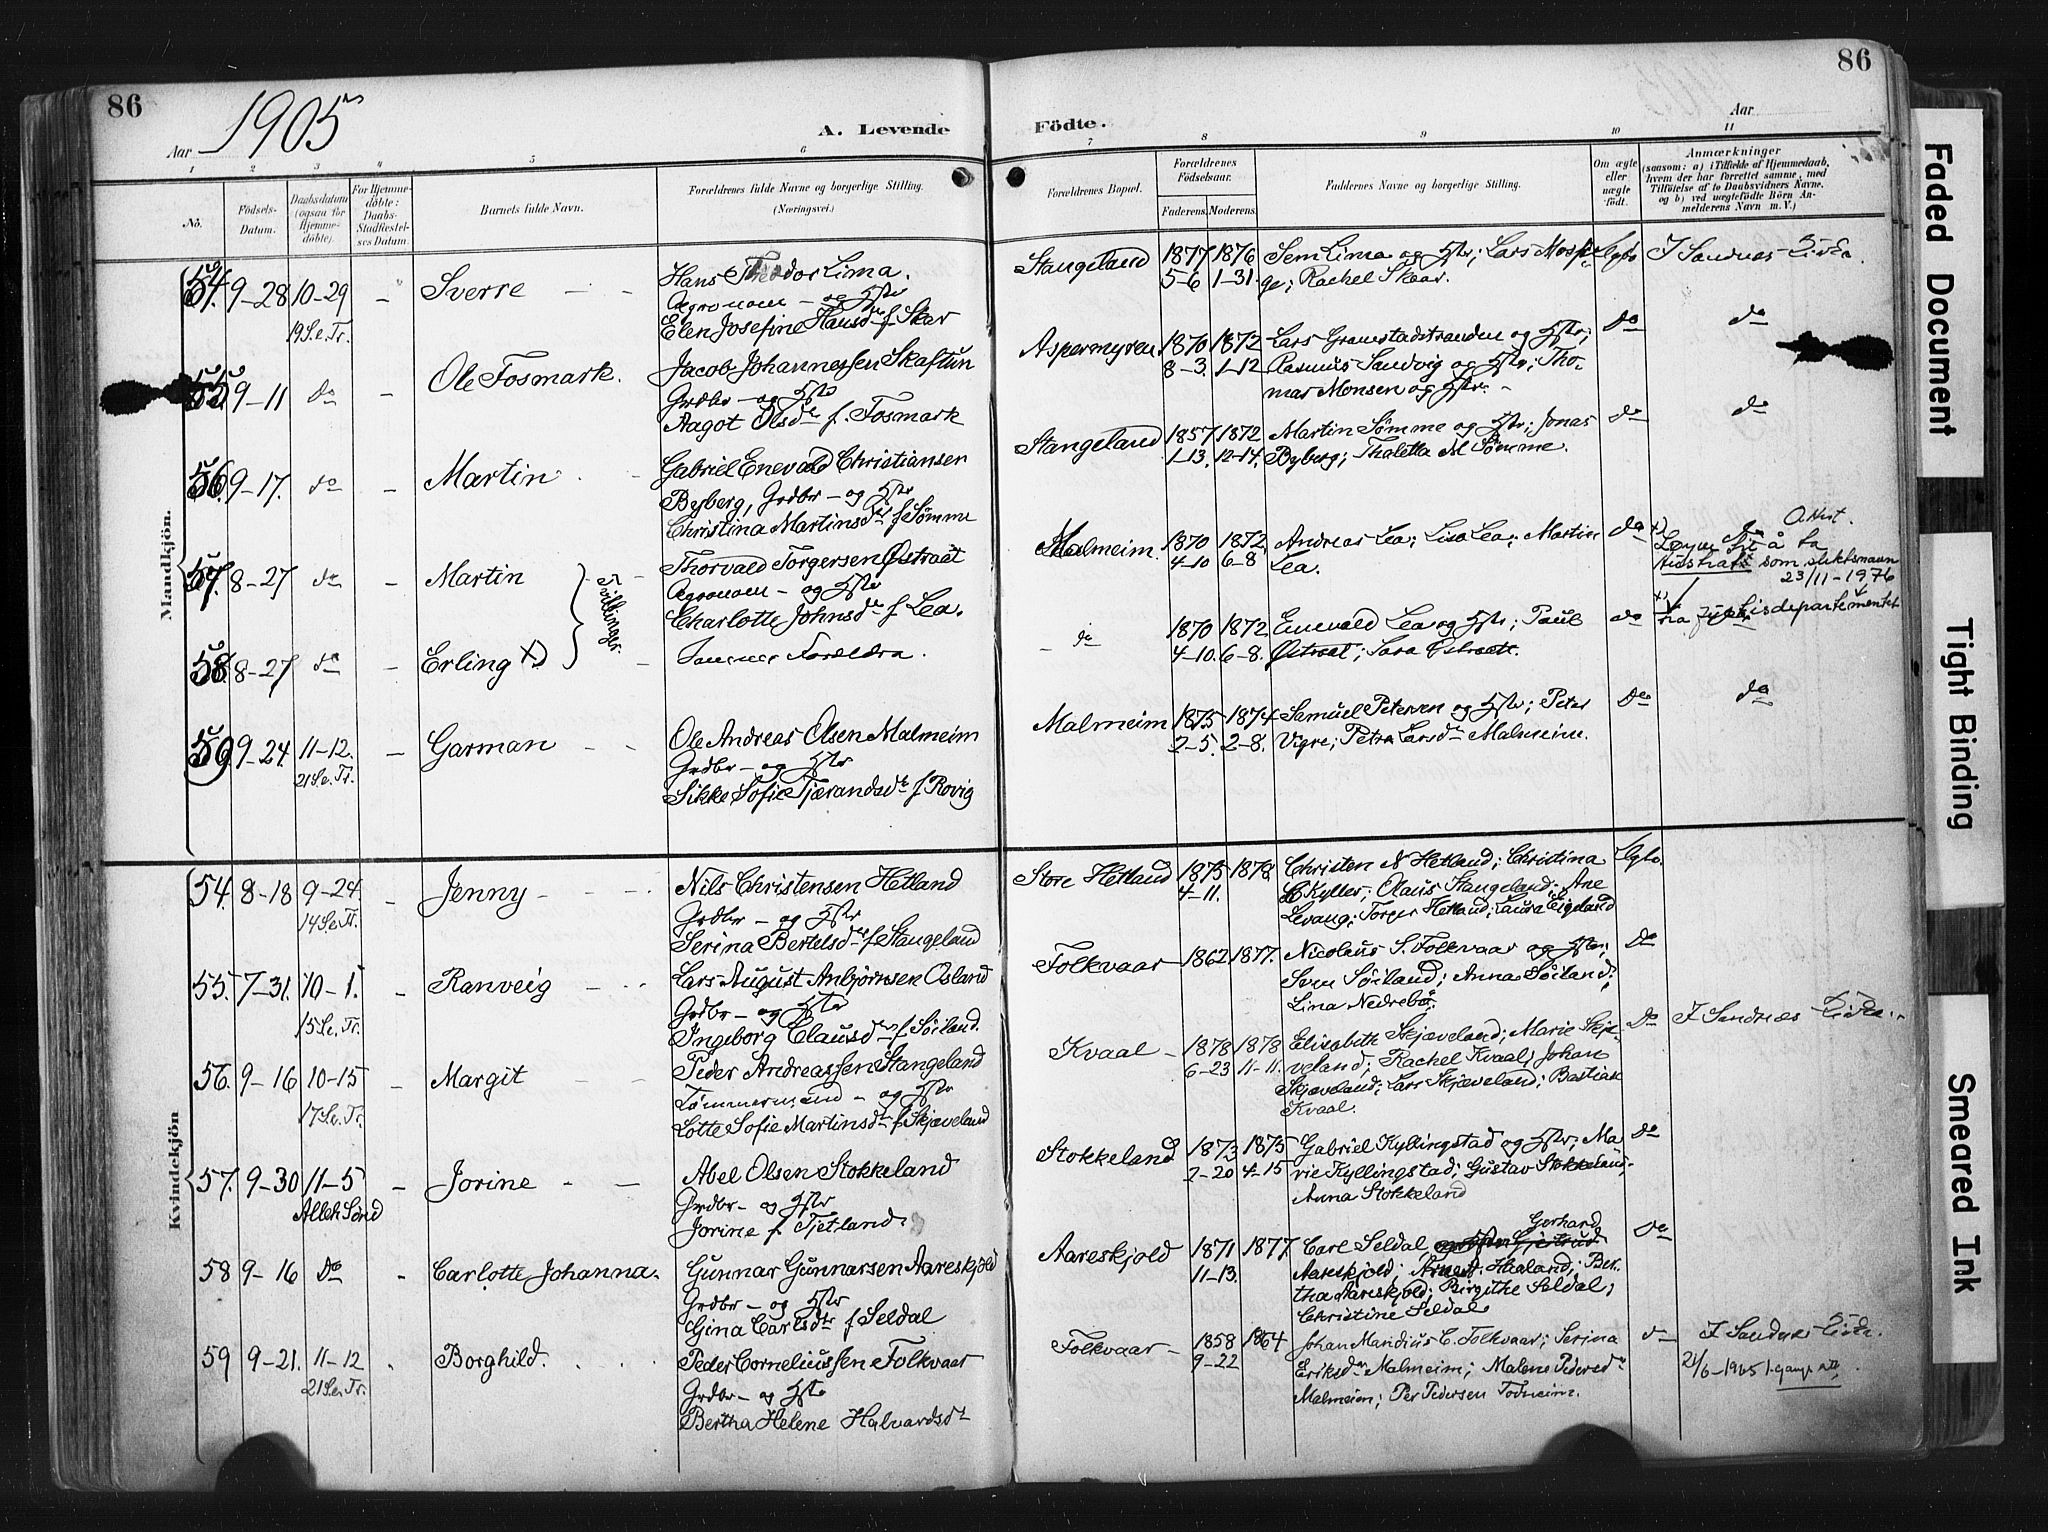 86
1905
Aar
A. Levende
Födte.
Aar
86
1 2 3 4 5 6 7 8 9 10 11
No.
Födsels-Datum.
Daabsdatum (ogsaa for Hjemmedöbte).
For Hjemmedöbte: Daabs-Stadfæstelses Datum.
Barnets fulde Navn.
Forældrenes fulde Navne og borgerlige Stilling.
(Næringsvei.)
Forældrenes Bopæl.
Forældrenes Födselsaar.
Faderens.
Moderens.
Faddernes Navne og borgerlige Stilling.
Om ægte eller uægte födt.
Anmærkninger
(saasom: a) i Tilfælde af Hjemmedaab,
hvem der har forrettet samme, med
Tilföielse af to Daabsvidners Navne,
og b) ved uægtefödte Börn Anmelderens Navn m. V.)
Mandkjön.
54. 9-28 10-29 - Sverre
19 S.e.Tr.
Hans Theodor Lima.
Agronom - og Hstr
Elen Josefine Hansdr f. Skar
Stangeland 1877 1876
5-6 1-31.
Sem Lima og Hstr; Lars Mossi-
ge; Rachel Skaar.
I Sandnes Kirke.
55. 9-11 do - Ole Fosmark.
Jacob Johannessen Skaftun
Grdbr - og Hstr
Aagot Olsdr f. Fosmark
Aspermyren. 1870 1872
8-3. 1-12
Lars Gramstadstranden og Hstr;
Rasmus Sandvig og Hstr; Tho-
mas Monsen og Hstr.
do do
56. 9-17. do - Martin
Gabriel Enevald Christiansen
Byberg, Grdbr - og Hstr
Christina Martinsdr f Sømme
Stangeland 1857 1872
1-13. 12-14.
Martin Sømme og Hstr; Jonas
Byberg; Thaletta M Sømme.
do do
57. 8-27 do - Martin
Tvillinger.
Thorvald Torgersen Østraat
Agronom - og Hstr
Charlotte Johnsdr f Lea.
Malmeim. 1870 1872
4-10 6-8
Andreas Lea; Lisa Lea; Martin
Lea.
do do
å ta
som slektsnavn
23/11-1976
fra Justisdepartementet
58. 8-27 do - Erling x)
Samme Forældre.
do 1870 1872
4-10. 6-8.
Enevald Lea og Hstr; Paul
Østraat; Sara Østraat.
do
59. 9-24 11-12. - Garman
21 S.e.Tr.
Ole Andreas Olsen Malmeim
Grdbr - og Hstr
Sikke Sofie Tjærandsdr f Rovig
Malmeim 1875 1874
2-5. 2-8.
Samuel Petersen og Hstr; Peter
Vigre; Petra Larsdr Malmeim.
Do do
Kvindekjön
54. 8-18 9-24. - Jenny
14 S.e.Tr.
Nils Christensen Hetland
Grdbr - og Hstr
Serina Bertelsdr f Stangeland
Store Hetland 1875 1878
4-11.
Christen N Hetland; Christina
Kyller; Olaus Stangeland; Ane
Levang; Torger Hetland; Laura Eigeland
55. 7-31. 10-1. - Ranveig
15 S.e.Tr.
Lars August Anbjørnsen Osland
Grdbr - og Hstr
Ingeborg Clausdr f. Søiland.
Folkvaar 1862 1877.
Nicolaus S. Folkvaar og Hstr;
Sven Søiland; Anna Søiland;
Lina Nedrebø.
Do
56. 9-16 10-15 - Margit
17 S.e.Tr.
Peder Andreassen Stangeland
Tømmermand - og Hstr
Lotte Sofie Martinsdr f Skjæveland
Kvaal - 1878 1878
6-23 11-11.
Elisabeth Skjæveland; Marie Skjæ-
veland; Rachel Kvaal; Johan
Skjæveland; Lars Skjæveland; Bastian
Kvaal.
Do I Sandnes Kirke.
57. 9-30 11-5 - Jorine
Alleh Sønd
Abel Olsen Stokkeland
Grdbr - og Hstr
Jorine f. Tjetland.
Stokkeland 1873 1875
2-20 4-15
Gabriel Kyllingstad og Hstr; Ma-
rie Kyllingstad; Gustav Stokkeland;
Anna Stokkeland
Do
58 9-16 Do - Carlotte Johanna.
Gunnar Gunnarsen Aareskjold
Grdbr - og Hstr
Gina Carlsdtr f Seldal
Aareskjold 1871 1877.
11-13.
Gerhard
Carl Seldal
Aareskjold; Haaland; Ber-
tha Aareskjold; Birgithe Seldal;
Christine Seldal
Do
59 9-21. 11-12 - Borghild.
21 S.e.Tr.
Peder Corneliussen Folkvaar
Grdbr - og Hstr
Bertha Helene Halvardsdr
Folkvaar - 1858 1864
9-22
Johan Mandius C. Folkvaar; Serina
Eriksdr Malmeim; Malene Pedersdr
Malmeim; Per Pedersen Todneim.
do I Sandnes Kirke.
21/6-1965
Faded Document
Tight Binding
Smeared Ink